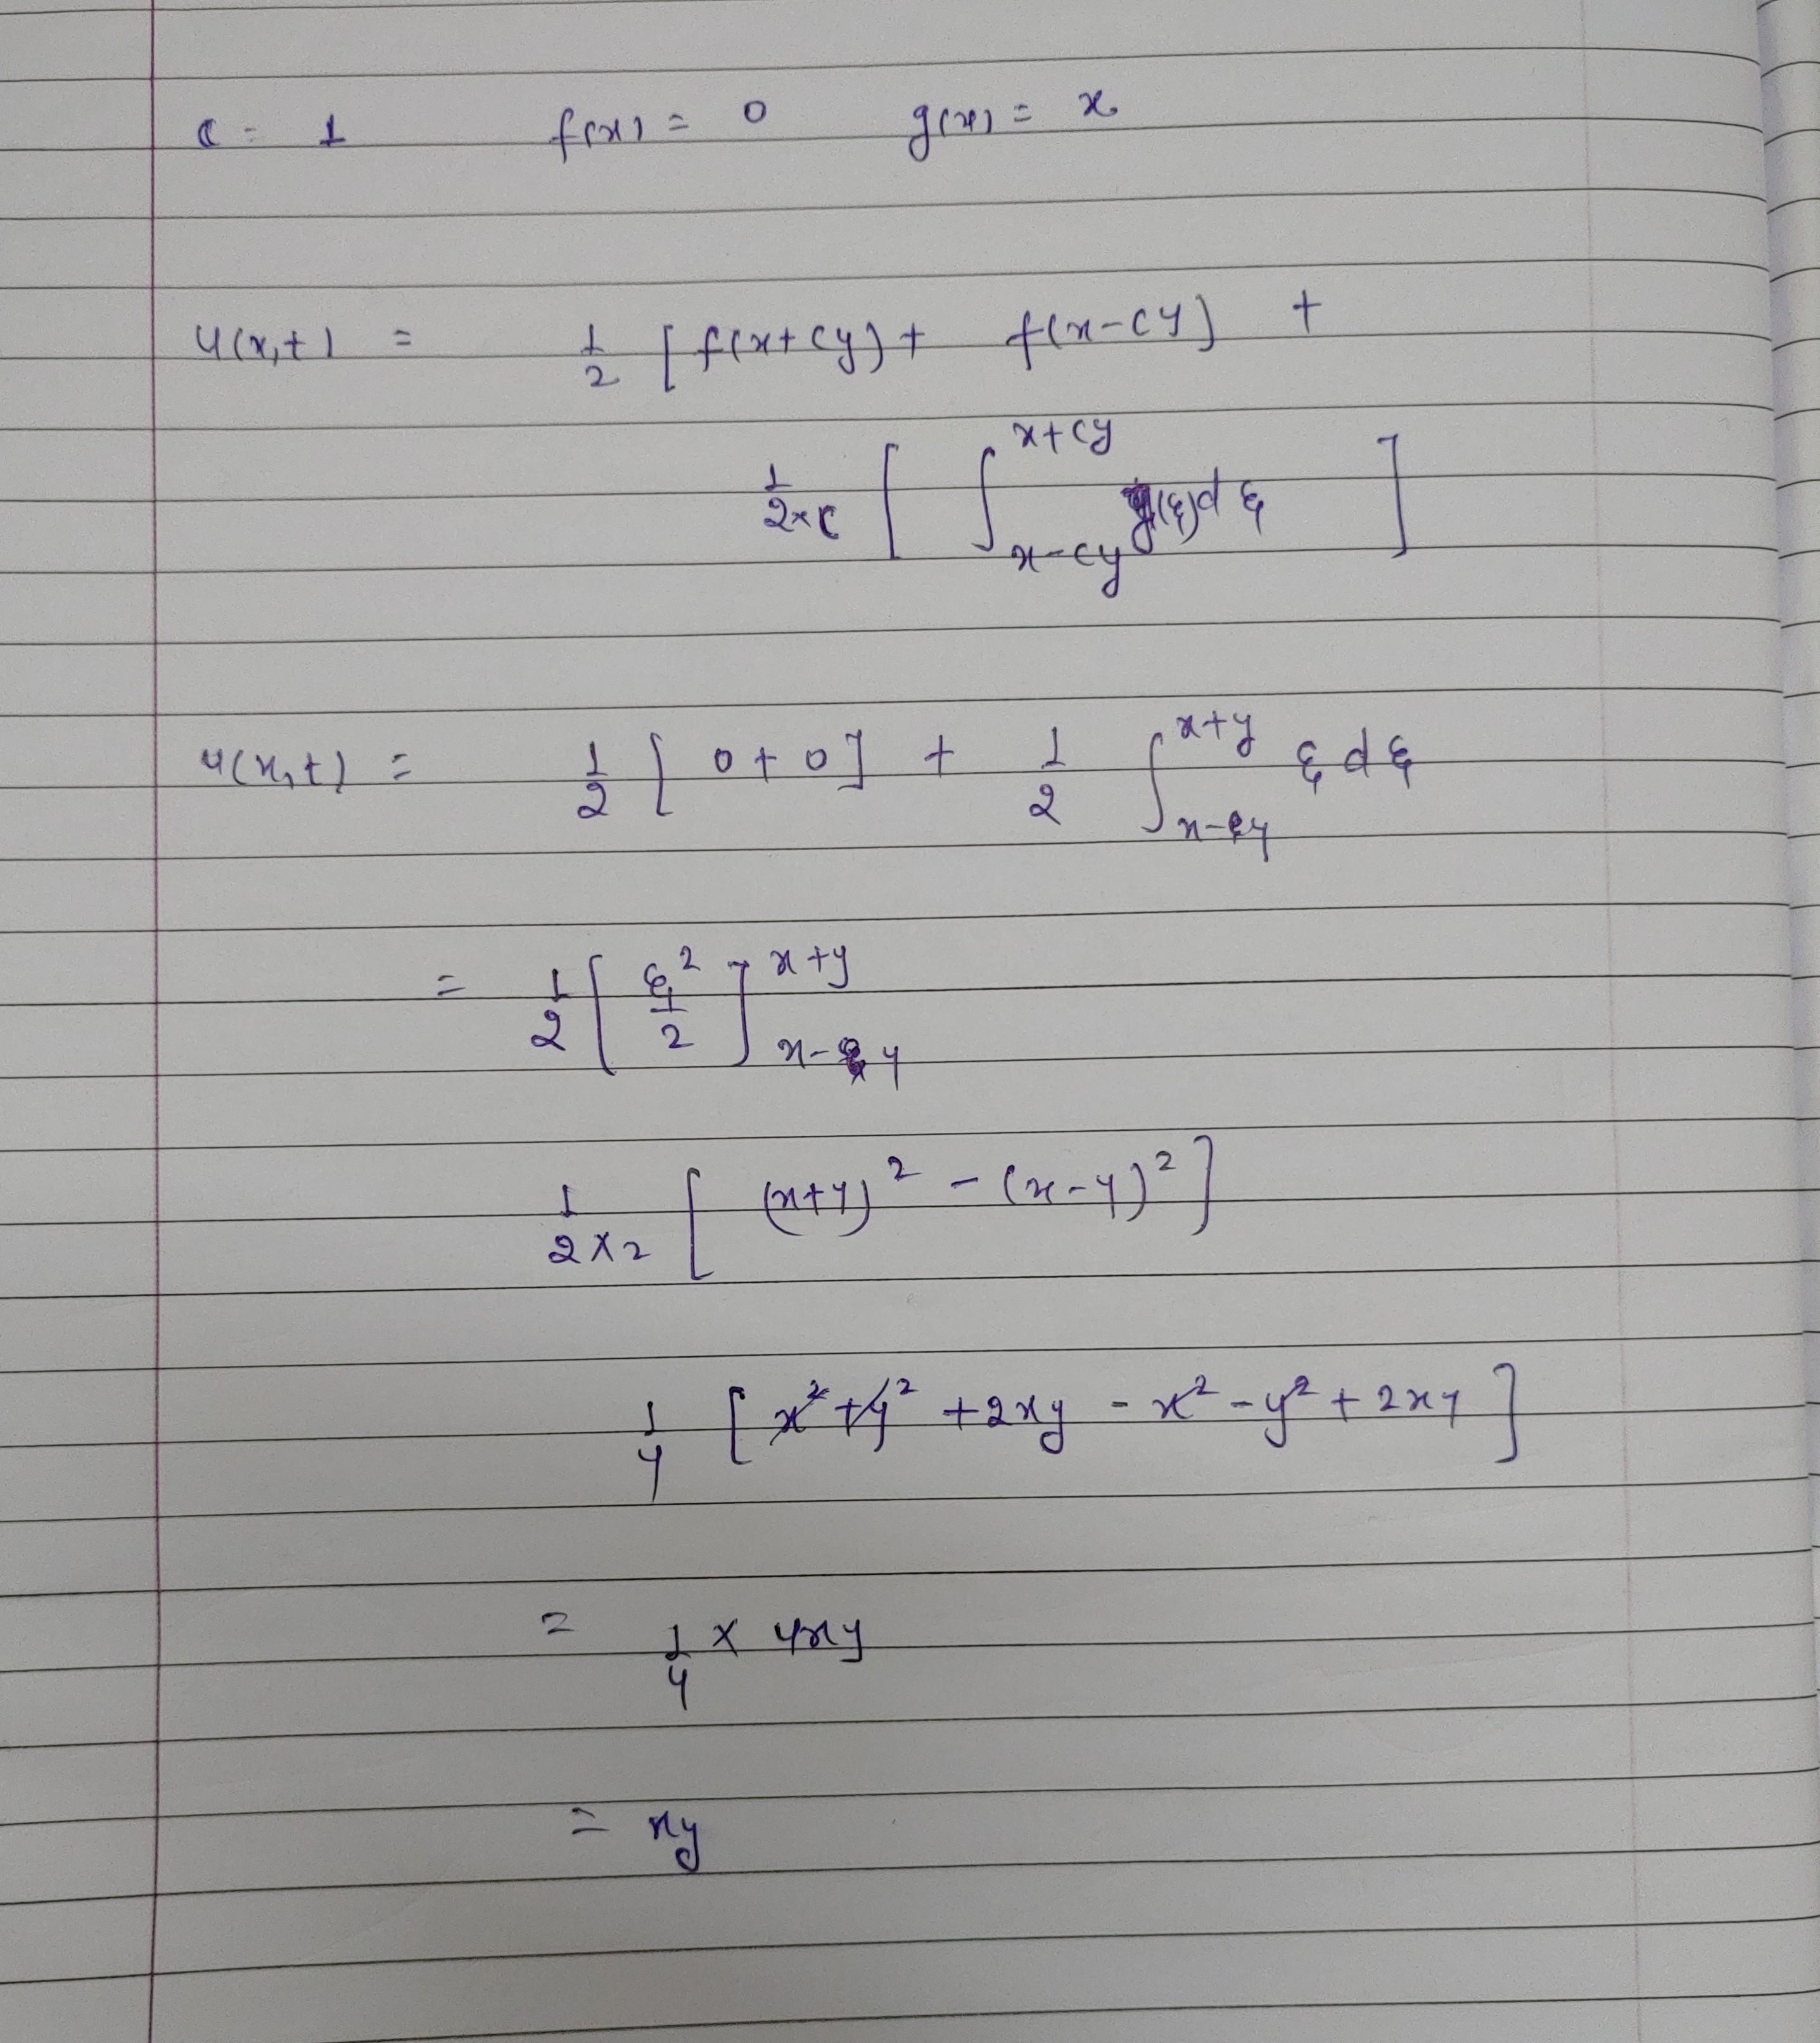 c = 1 f(x) = 0 g(x) = x
u(x,t) = 1/2 [f(x+cy) + f(x-cy] +
1/2×c [ ∫_{x-cy}^{x+cy} g(ξ)dξ ]
u(x,t) = 1/2 [0+0] + 1/2 ∫_{x-y}^{x+y} ξ dξ
= 1/2 [ξ²/2]_{x-y}^{x+y}
1/2×2 [(x+y)² - (x-y)²]
1/4 [x²+y²+2xy - x²-y²+2xy]
= 1/4 × 4xy
= xy